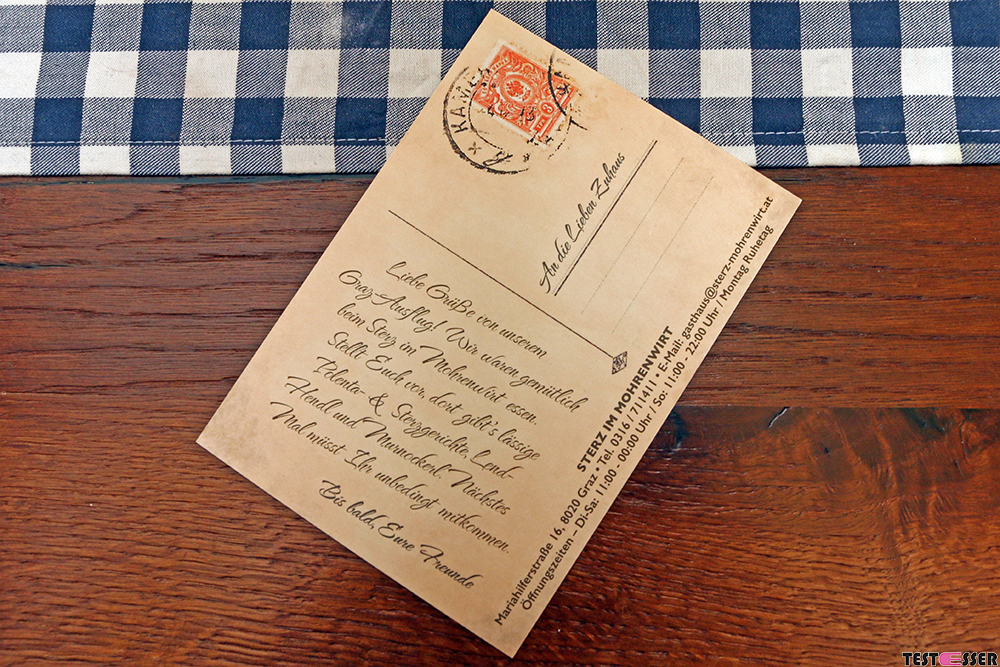 KAMEN
13
8
An die Lieben Zuhaus
Liebe Grüße von unserem
Graz-Ausflug! Wir waren gemütlich
beim Sterz im Mohrenwirt essen.
Stellt Euch vor, dort gibt's lässige
Polenta- & Sterzgerichte, Lend-
Hendl und Murnockerl. Nächstes
Mal müsst Ihr unbedingt mitkommen.
Bis bald, Eure Freunde
STERZ IM MOHRENWIRT
Mariahilferstraße 16, 8020 Graz • Tel. 0316 / 711411 • E-Mail: gasthaus@sterz-mohrenwirt.at
Öffnungszeiten – Di-Sa: 11:00 - 00:00 Uhr / So: 11:00 - 22:00 Uhr / Montag Ruhetag
TESTESSER